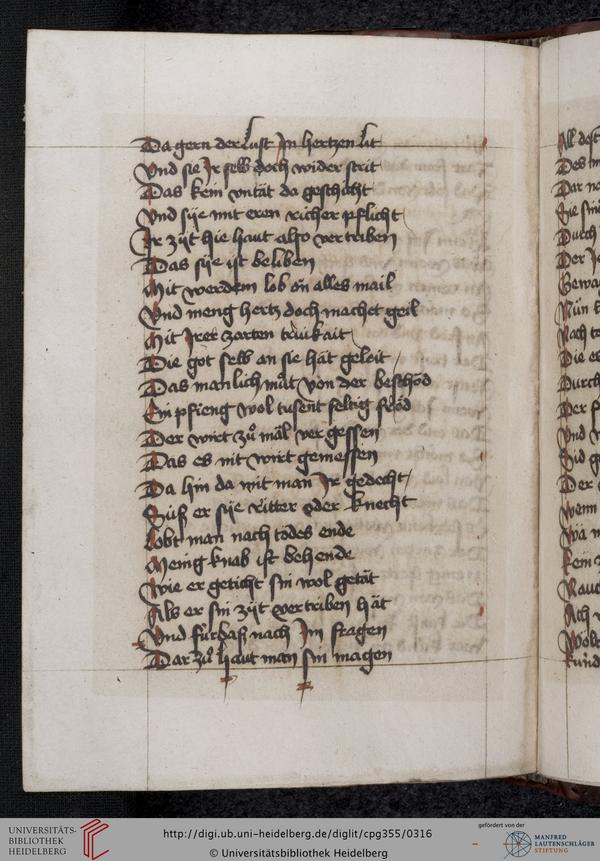 Da gern der lust Jn hertzen lit
Vnd sie Jr selb doch wider strit
Das kein vntät da geschicht
Vnd sÿe mit eren richer pflicht
Jr zÿt hie haut also vertriben
Das sÿe ist beliben
Mit werdem lob on alles mail
Vnd meng hertz doch machet geil
Mit Jrer zarten
Die got selb an sie hät geleit
Das manlich můt von der beschöd
Ein pfieng wol tusent seltig fröd
Der wirt zů mäl ver gessen
Das es nit wirt gemessen
Da hin da mit man Jr gedecht
Süß er sÿe ritter oder knecht
Lobt man nach todes ende
Menig knab ist behende
Wie er geticht sin wol getät
Als er sin zÿt vertriben hät
Vnd fürbaß nach Jm fragen
Dar zů haut man sin magen
All
Des
Dar
Sie
Durch
Der
Nün
Nach
Die
Durch
Der
Vnd
Sid
Der
Wenn
Wa
Kein
Ach
UNIVERSITÄTS-
BIBLIOTHEK
HEIDELBERG
http://digi.ub.uni-heidelberg.de/diglit/cpg355/0316
© Universitätsbibliothek Heidelberg
gefördert von der
MANFRED
LAUTENSCHLÄGER
STIFTUNG